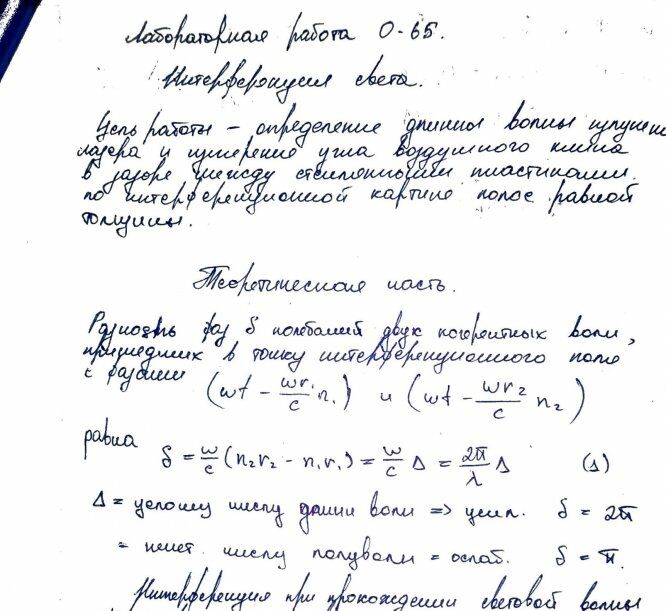 Лабораторная работа О-65.
Интерференция света.
Цель работы – определение длинны волны излучени
лазера и измерение угла воздушного клина
в зазоре между стеклянными пластинами.
по интерференционной картине полос равной
толщины.
Теоретическая часть.
Разность фаз δ колебаний двух когерентных волн,
пришедших в точку интерференционного поля
с фазами (ωt - ωr₁/c n₁) и (ωt - ωr₂/c n₂)
равна δ = ω/c (n₂r₂ - n₁r₁) = ω/c Δ = 2π/λ Δ (1)
Δ = целому числу длинн волн => усил. δ = 2π
= нечет. числу полуволн = ослаб. δ = π.
Интерференция при прохождении световой волны